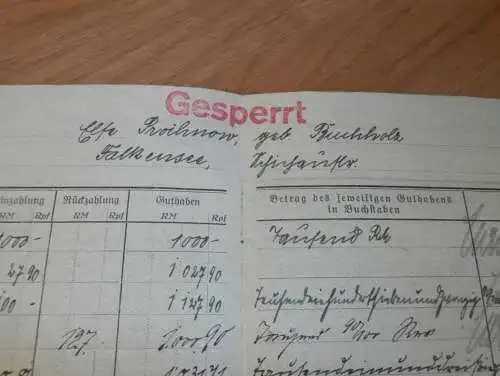 Gesperrt
Else Prillnow, geb Buchholz
Falkensee, Schichaustr.
nzahlung Rückzahlung Guthaben Betrag des jeweiligen Guthabens
RM Rpf RM Rpf RM Rpf in Buchstaben
1000- 1000- Tausend RM
27 90 1 027 90
100 - 1 127 90 Tausendeinhundertsiebenundzwanzig
127 1000. 90 Tausend 90/100